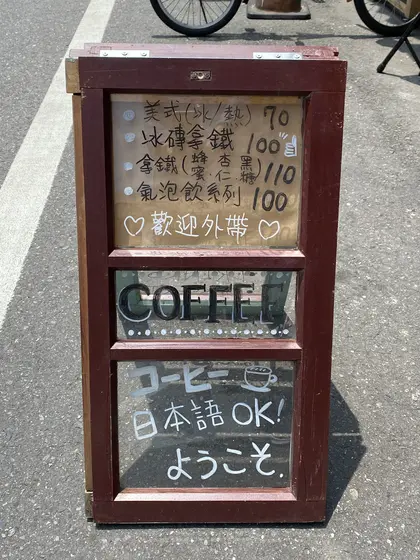 美式(冰/熱) 70
冰磚拿鐵 100
拿鐵(蜂蜜 杏仁 黑糖) 110
氣泡飲系列 100
♡歡迎外帶♡
COFFEE
コーヒー
日本語OK!
ようこそ.